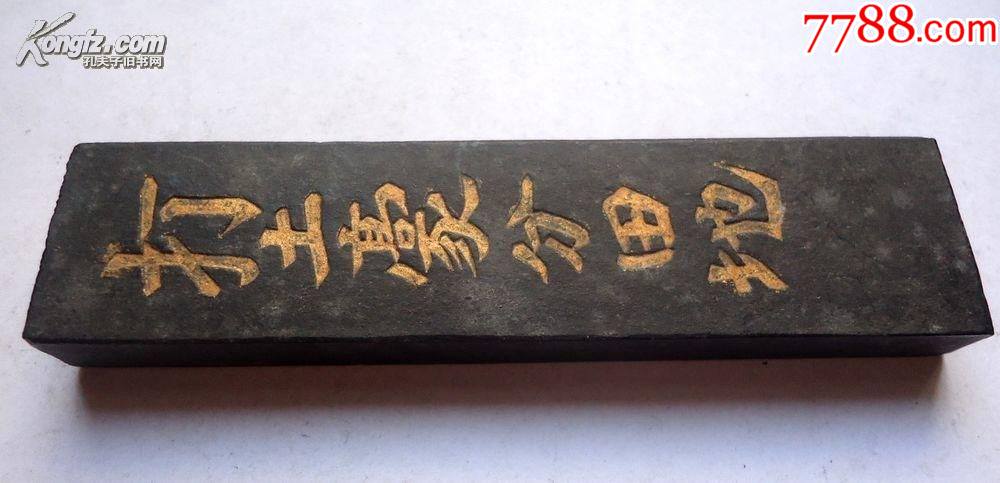 Kongfz.com
孔夫子旧书网
7788.com
打土豪分田地